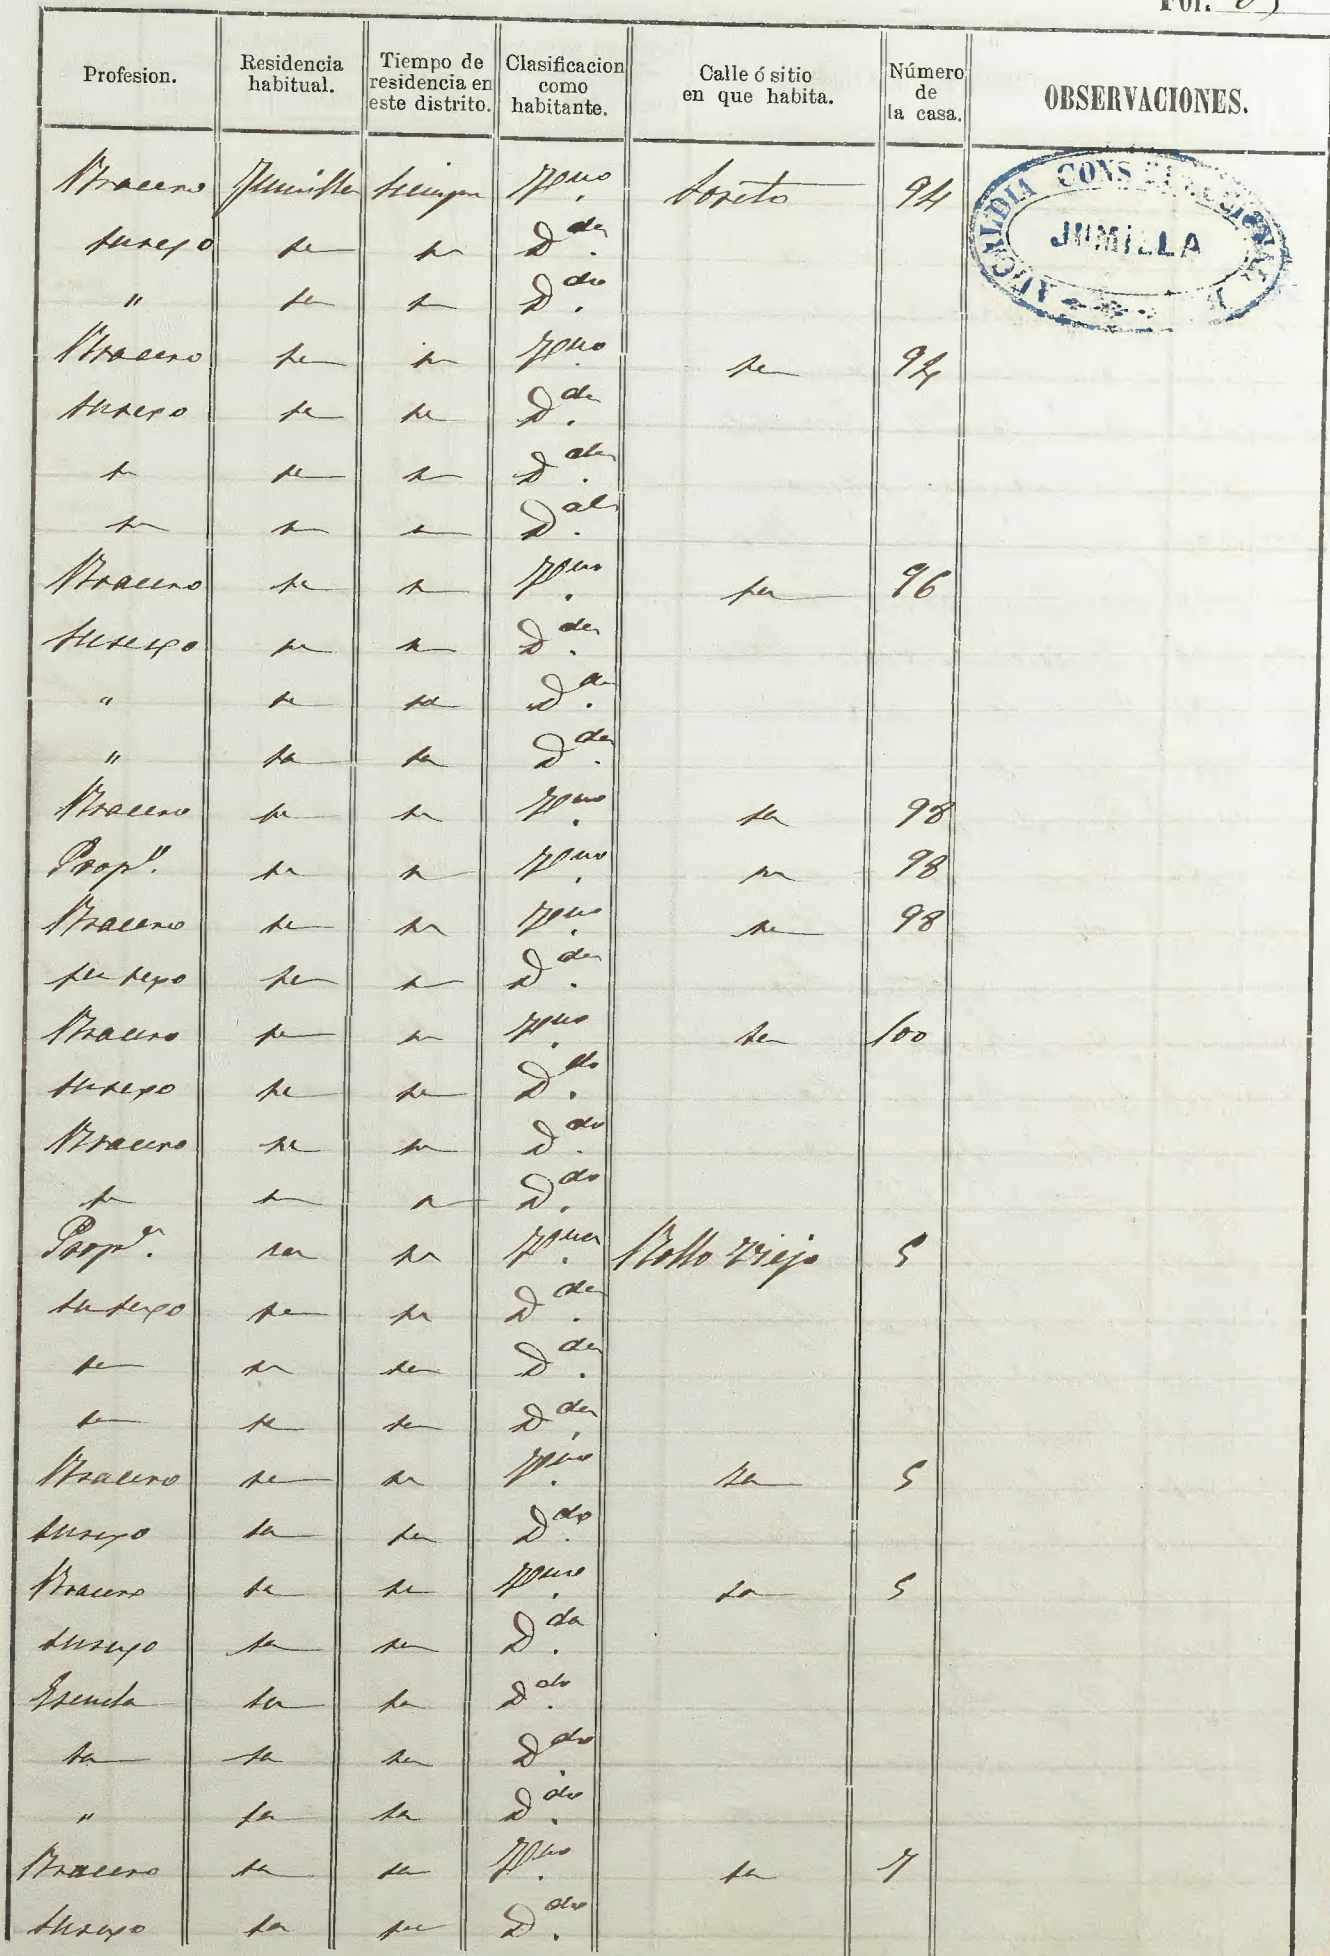 Fol.
Profesion. Residencia habitual. Tiempo de residencia en este distrito. Clasificacion como habitante. Calle ó sitio en que habita. Número de la casa. OBSERVACIONES.
ALCALDIA CONSTITUCIONAL
JUMILLA
Bracero Jumilla siempre Vno. Loreto 94
su sexo id id Dda.
" id id Ddo.
Bracero id id Vno. id 94
su sexo id id Dda.
id id id Dda.
id id id Dda.
Bracero id id Vno. id 96
su sexo id id Dda.
" id id Dda.
" id id Dda.
Bracero id id Vno. id 98
Propº. id id Vno. id 98
Bracero id id Vno. id 98
su sexo id id Dda.
Bracero id id Vno. id 100
su sexo id id Ddo.
Bracero id id Ddo.
id id id Ddo.
Propª. id id Vna. Rollo Viejo 5
su sexo id id Dda.
id id id Dda.
id id id Dda.
Bracero id id Vno. id 5
su sexo id id Ddo.
Bracero id id Vno. id 5
su sexo id id Dda.
Escuela id id Ddo.
id id id Ddo.
" id id Ddo.
Bracero id id Vno. id 7
su sexo id id Ddo.